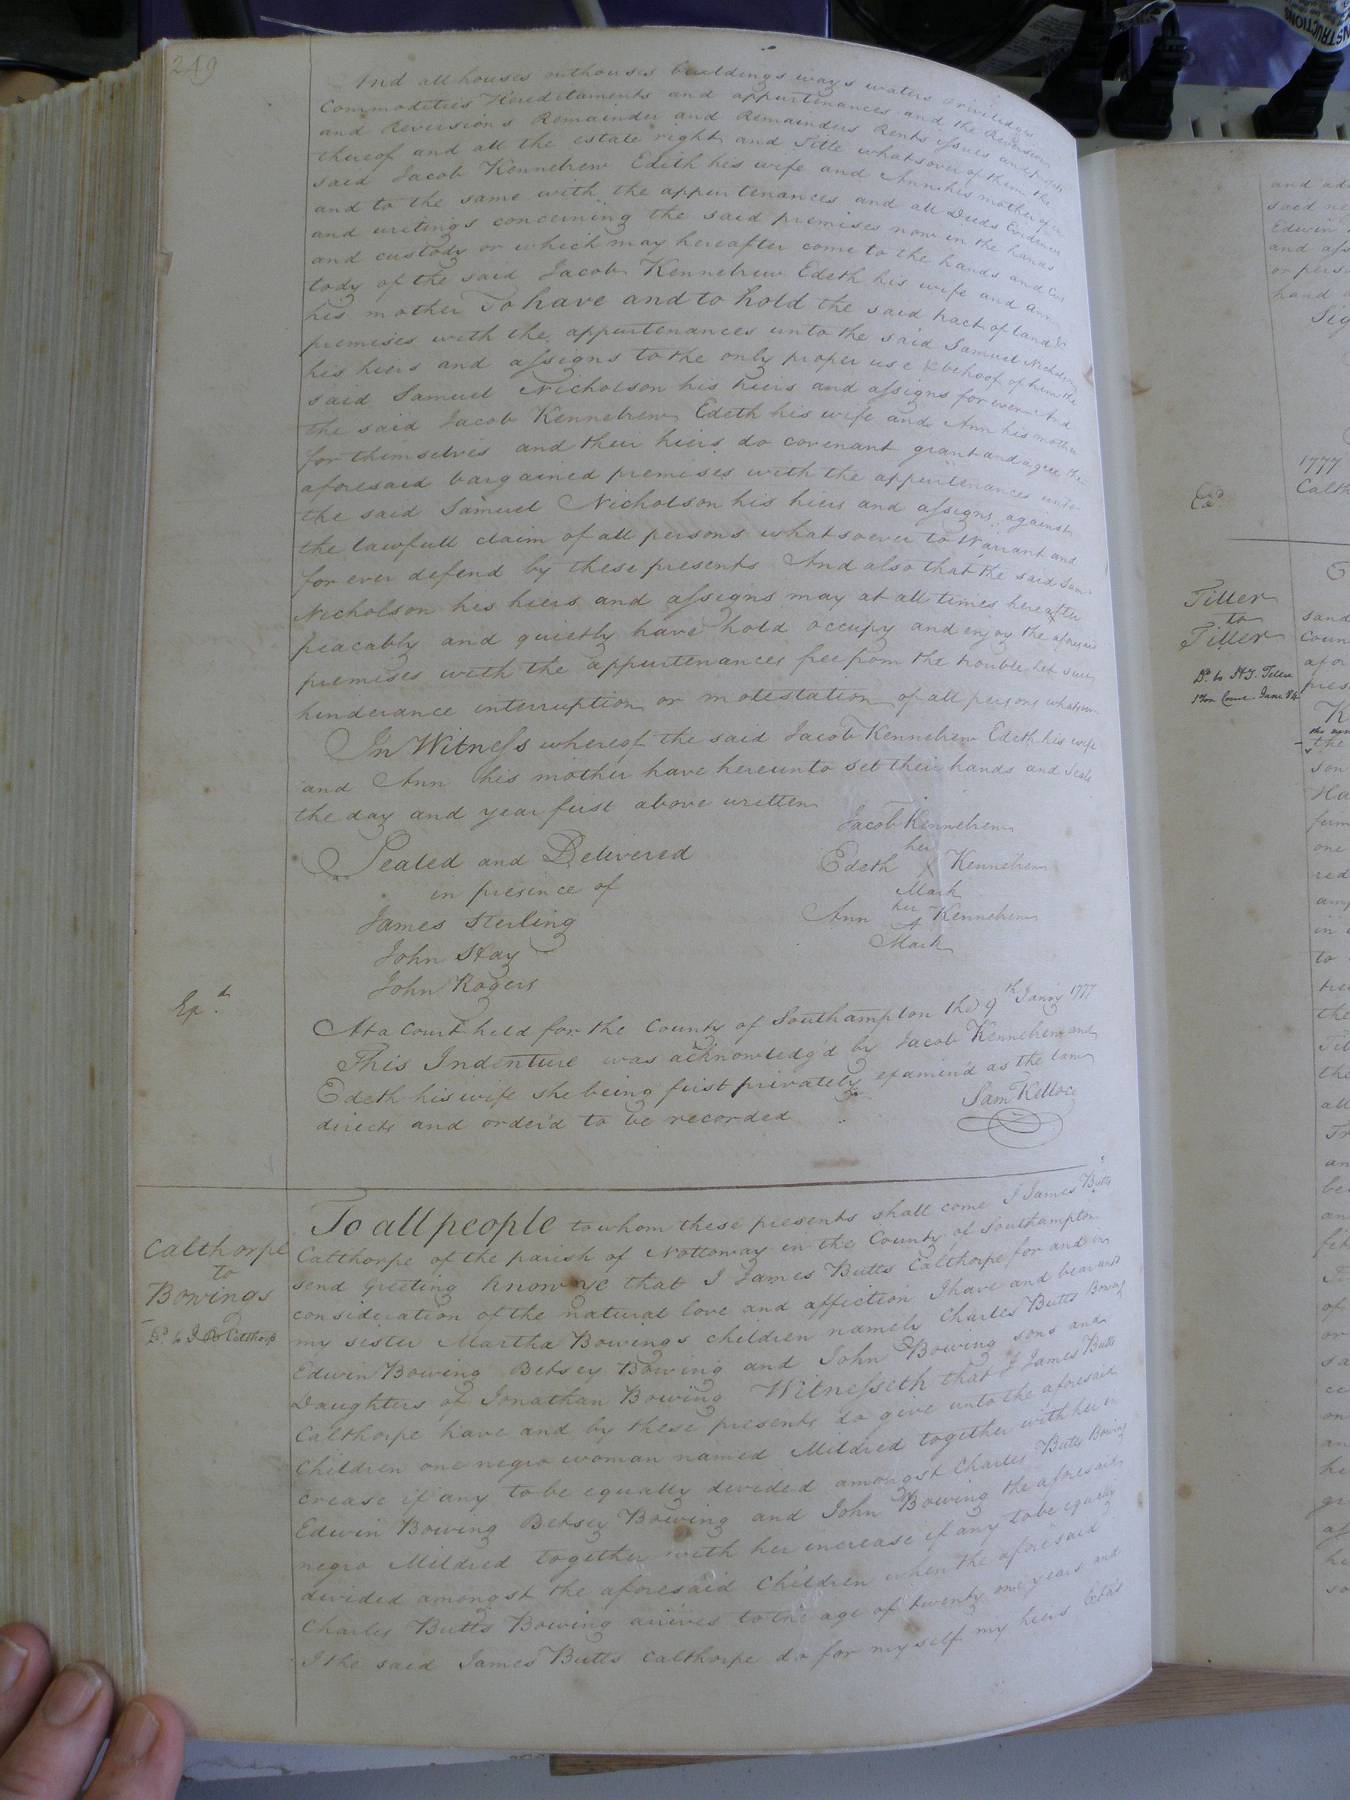 249
And all houses outhouses buildings ways waters priviledges
Commodities Hereditaments and appurtenances and the Reversion
and Reversions Remainder and Remainders Rents issues and profits
thereof and all the estate right and title whatsover of them the
said Jacob Kennebrew Edeth his wife and Ann his mother of in
and to the same with the appurtenances and all Deeds Evidences
and writings concerning the said premises now in the hands
and custody or which may hereafter come to the hands and Cus
tody of the said Jacob Kennebrew Edeth his wife and Ann
his mother To have and to hold the said tract of land &
premises with the appurtenances unto the said Samuel Nicholson
his hiers and assigns to the only proper use & behoof of him the
said Samuel Nicholson his hiers and assigns for ever And
the said Jacob Kennebrew Edeth his wife and Ann his mother
for themselves and their hiers do covenant grant and agree the
aforesaid bargained premises with the appurtenances unto
the said Samuel Nicholson his hiers and assigns against
the lawfull claim of all persons whatsoever to Warrant and
for ever defend by these presents And also that the said Sam
Nicholson his hiers and assigns may at all times hereafter
peacably and quietly have hold occupy and enjoy the aforesaid
premises with the appurtenances free from the trouble let suit
hinderance interruption or molestation of all persons whatsoever
In Witness whereof the said Jacob Kennebrew Edeth his wife
and Ann his mother have hereunto set their hands and Seals
the day and year first above written
Jacob Kennebrew
her
Edeth X Kennebrew
Mark
her
Ann + Kennebrew
Mark
Sealed and Delivered
in presence of
James Sterling
John Hay
John Rogers
Exd
At a Court held for the County of Southampton the 9th Janry 1777
This Indenture was acknowledg'd by Jacob Kennebrew and
Edeth his wife she being first privately examin'd as the law
directs and order'd to be recorded
Sam Kelloce
Calthorpe
to
Bowings
Dd to J B Calthorp
To all people to whom these presents shall come I James Butts
Calthorpe of the parish of Nottoway in the County of Southampton
send greeting Know ye that I James Butts Calthorpe for and in
consideration of the natural love and affection I have and bear unto
my sister Martha Bowings children namely Charles Butts Bowing
Edwin Bowing Betsey Bowing and John Bowing sons and
Daughters of Jonathan Bowing Witnesseth that I James Butts
Calthorpe have and by these presents do give unto the aforesaid
Children one negro woman named Mildred together with her in
crease if any to be equally devided amongst Charles Butts Bowing
Edwin Bowing Betsey Bowing and John Bowing the aforesaid
negro Mildred together with her increase if any to be equally
divided amongst the aforesaid Children when the aforesaid
Charles Butts Bowing arrives to the age of twenty one years and
I the said James Butts Calthorpe do for myself my hiers
Tiller
to
Tiller
1777